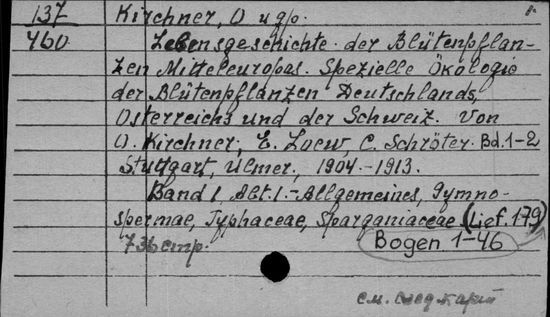 137 Kirchner, O и др.
460 Lebensgeschichte der Blütenpflan-
zen Mitteleuropas. Spezielle Ökologie
der Blütenpflanzen Deutschlands,
Österreichs und der Schweiz. Von
O. Kirchner, E. Loew, C. Schröter. Bd. 1-2
Stuttgart, Ulmer, 1904.-1913.
Band 1, Abt. 1.- Allgemeines, Gymno-
spermae, Typhaceae, Sparganiaceae (Lief. 179)
736 стр. Bogen 1-46
см. след карт